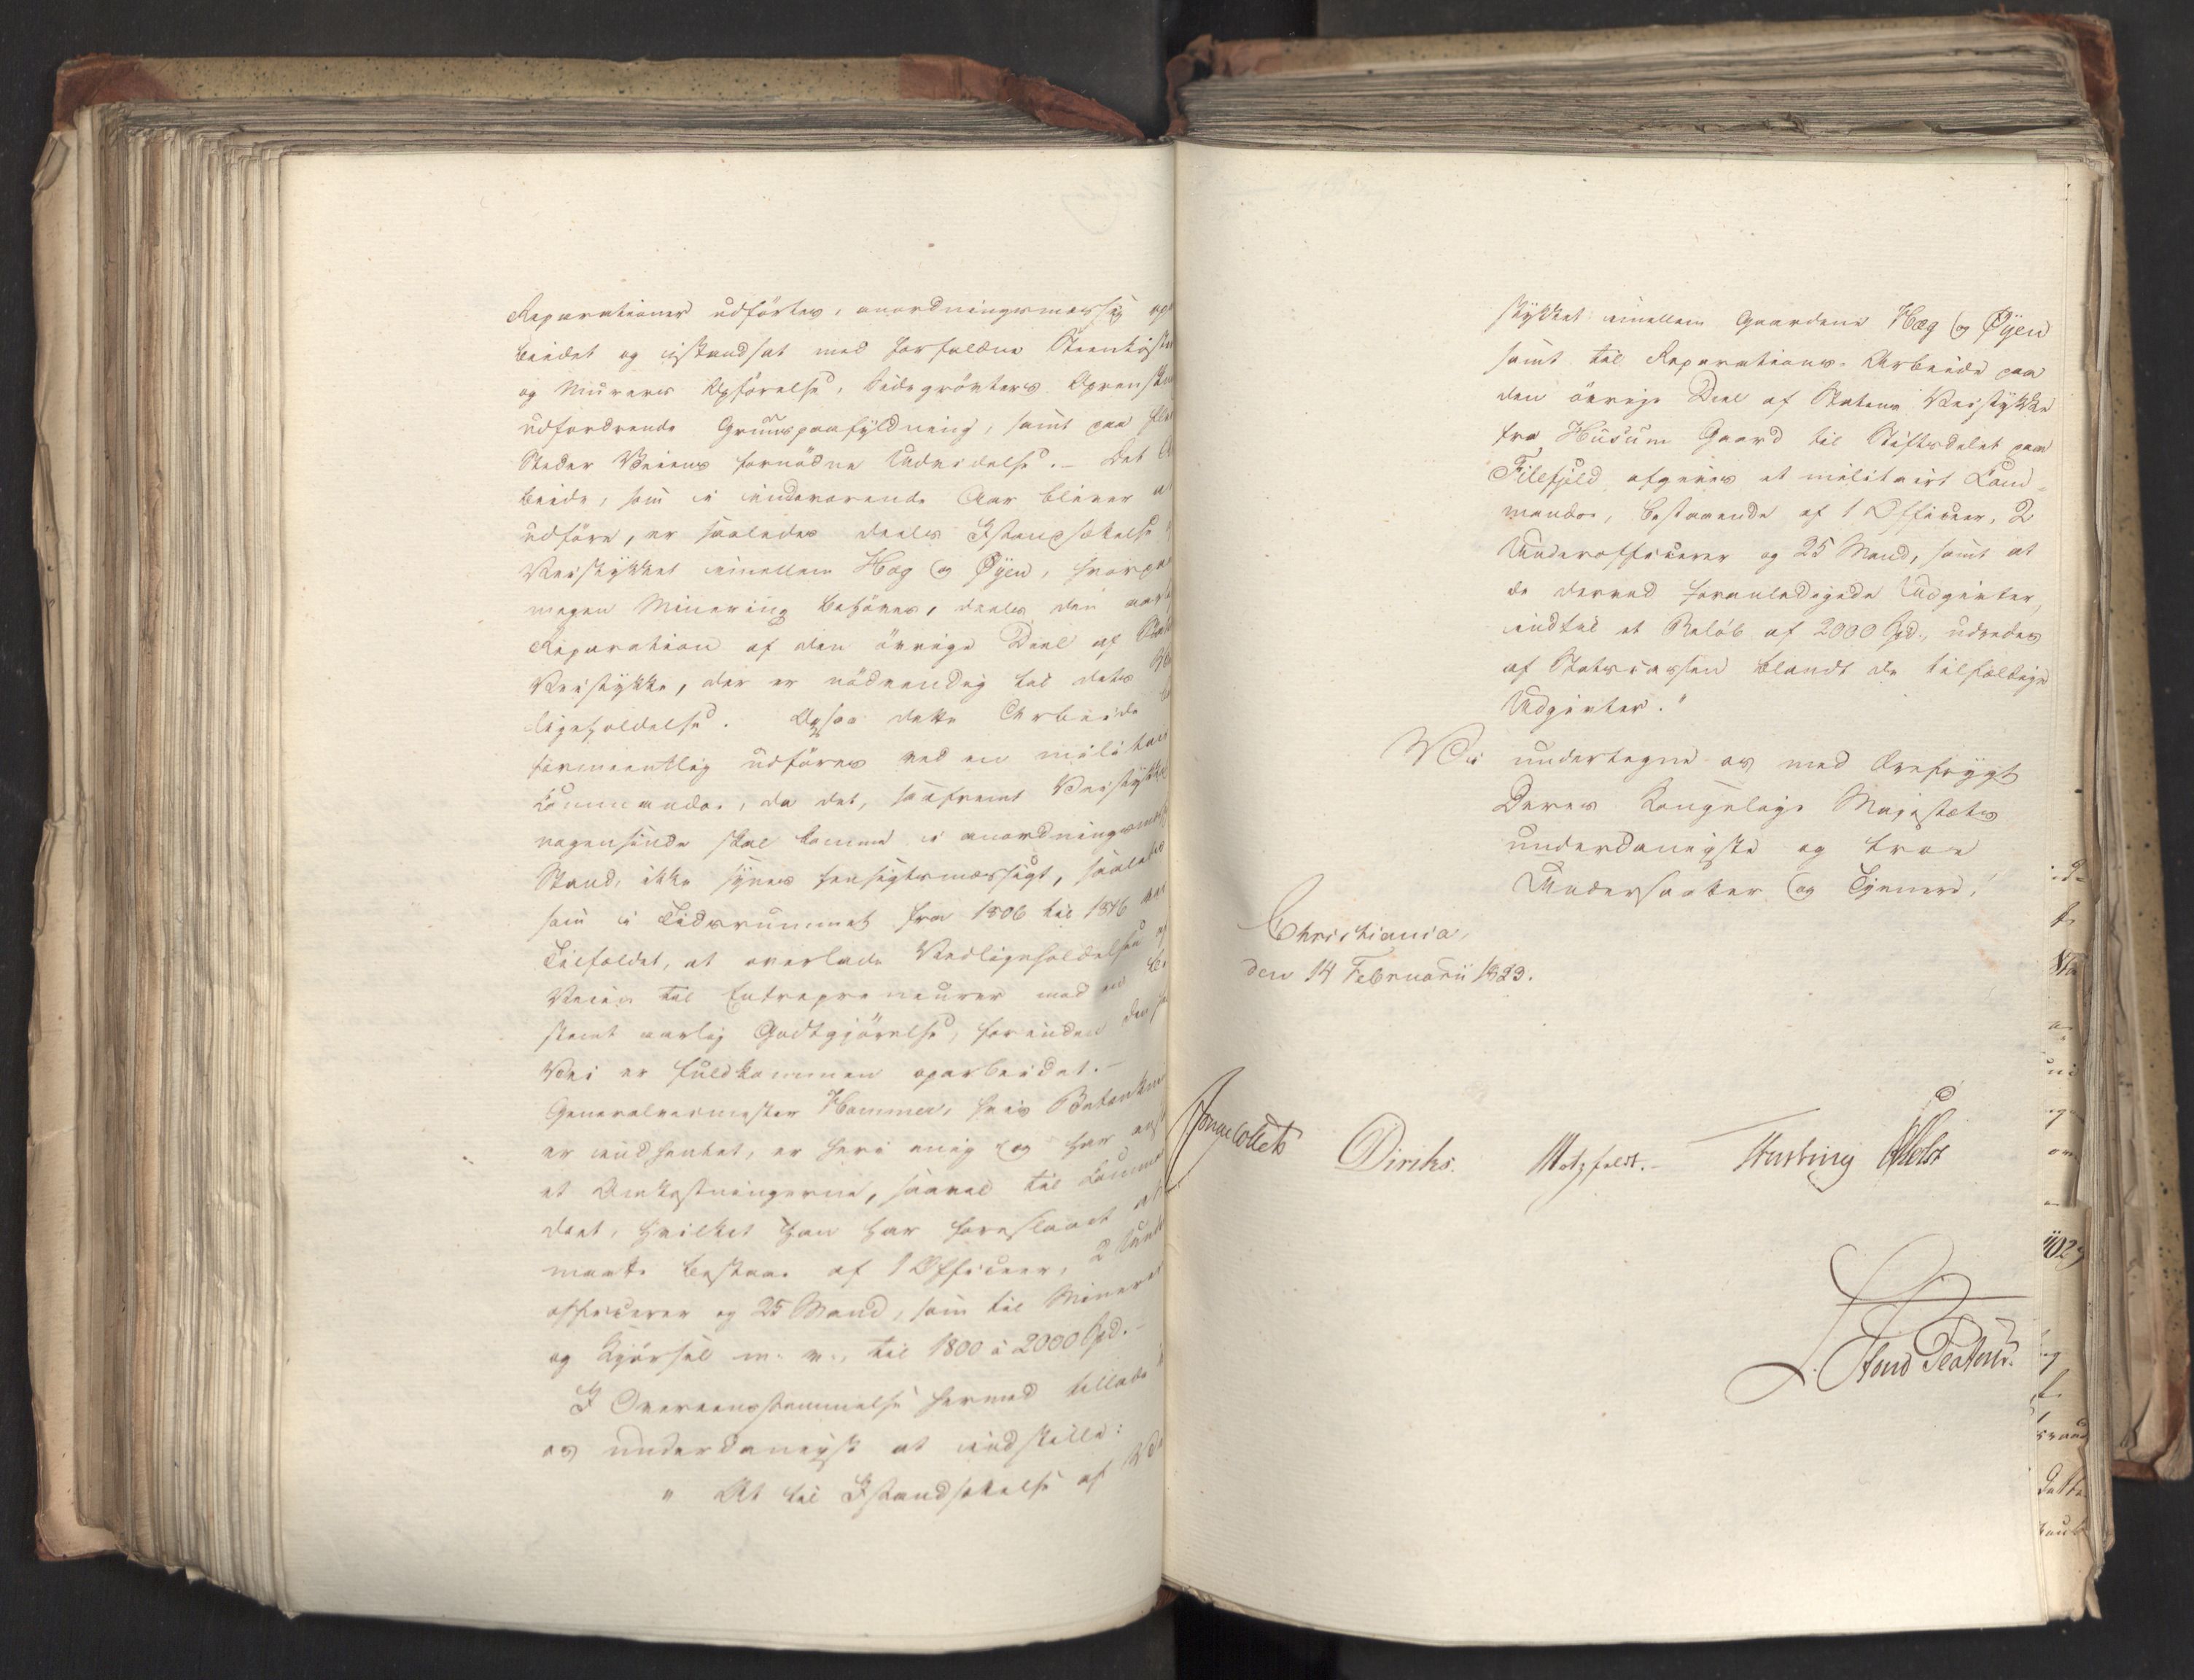 Reparationer udförtes, anordningsmæssig op
beidet og istandsat med forfaldne Steenkister
og Murers Opförelse, Sidegrövters Oprensk
udfordrende Gruuspaafyldning, samt paa fle
Steder Veiens fornödne Udvidelse. – Det A
beide, som i indeværende Aar bliver at
udföre, er saaledes deels Istandsættelse
Veistykket imellem Hæg og Øyen, hvorpaa
megen Minering behöves, deels den aarl
Reparation af den övrige Deel af Stat
Veistykke, der er nödvendig til dets Ve
ligeholdelse. Ogsaa dette Arbeide
formeentlig udföres ved en militair
Commando, da det, saafremt Veistykke
nogensinde skal komme i anordningsmæs
Stand, ikke synes hensigtsmæssigt, saaledes
som i Tidsrummet fra 1806 til 1816 var
Tilfældet, at overlade Vedligeholdelsen af
Veien til Entrepreneurer mod en be
stemt aarlig Godtgjörelse, forinden den
Vei er fuldkommen oparbeidet. –
Generalveimester Hammer, hvis Betænkni
er indhentet, er heri enig og har
at Omkostningerne, saavel til Comma
doet, hvilket han har foreslaaet at
maatte bestaae af 1 Officeer, 2 Under
officerer og 25 Mand, som til Minerer
og Kjörsel m. v., til 1800 à 2000 Spd. –
I Overeensstemmelse hermed tillade
os underdanigst at indstille:
" At til Istandsættelse af Vei
stykket imellem Gaardene Hæg og Øyen
samt til Reparations-Arbeide paa
den övrige Deel af Statens Veistykke
fra Husum Gaard til Stiftsdelet paa
Filefjeld afgives et militairt Com-
mando, bestaaende af 1 Officeer, 2
Underofficerer og 25 Mand, samt at
de derved foranledigede Udgivter,
indtil et Belöb af 2000 Spd., udredes
af Statscassen blandt de tilfældige
Udgivter."
Vi undertegne os med Ærefrygt
Deres Kongelige Majestæts
underdanigste og troe
Undersaatter og Tjenere!
Christiania,
den 14 Februarii 1823.
Jonas Collett Diriks. Motzfeldt. – Fasting Holst